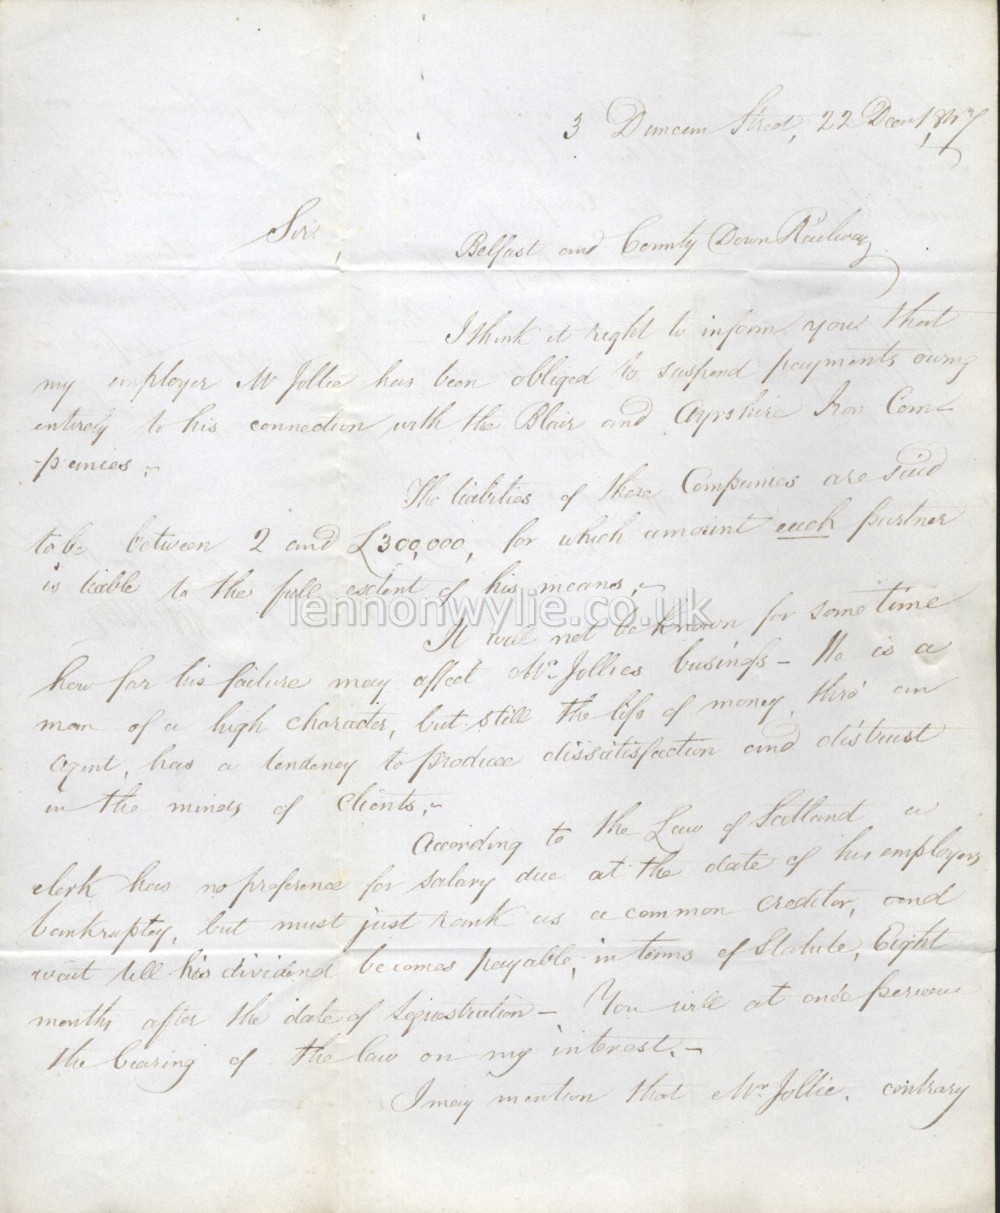 3 Duncan Street, 22 Decr 1847
Sir,
Belfast and County Down Railway
I think it right to inform you that
my employer Mr Jollie has been obliged to suspend payments owing
entirely to his connection with the Blair and Ayrshire Iron Com-
-panies.
The liabilities of these Companies are said
to be between 2 and £300,000, for which amount each partner
is liable to the full extent of his means.
lennonwylie.co.uk
It will not be known for some time
how far his failure may affect Mr. Jollies business - He is a
man of a high character, but still the loss of money, thro' an
agent, has a tendency to produce dissatisfaction and distrust
in the minds of clients.
According to the Law of Scotland a
clerk has no preference for salary due at the date of his employers
bankruptcy, but must just rank as a common creditor, and
wait till his dividend becomes payable, in terms of Statute, Eight
months after the date of Sequestration - You will at once perceive
the bearing of the law on my interest. -
I may mention that Mr Jollie, contrary